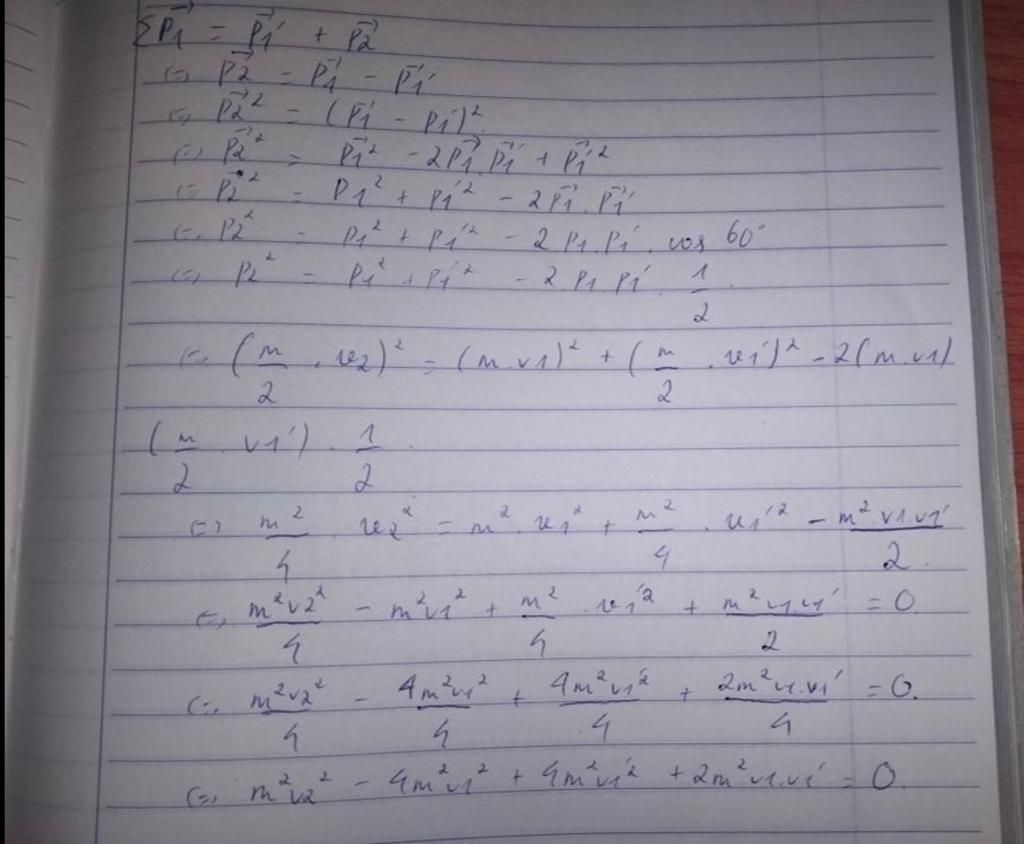 {P⃗1 = P⃗1' + P⃗2
(=) P⃗2 = P⃗1 - P⃗1'
(=) P⃗2² = (P⃗1 - P⃗1')²
(=) P⃗2² = P⃗1² - 2P⃗1.P⃗1' + P⃗1'²
(=) P⃗2² = P1² + P1'² - 2P⃗1.P⃗1'
(=) P2² = P1² + P1'² - 2 P1.P1'. cos 60°
(=) P2² = P1² + P1'² - 2.P1.P1'. 1/2.
(=) (m/2 . v2)² = (m.v1)² + (m/2 . v1')² - 2(m.v1)
(m/2 . v1') . 1/2.
(=) m²/4 . v2² = m².v1² + m²/4 . v1'² - m².v1.v1'/2.
(=) m²v2²/4 - m²v1² + m²/4 . v1'² + m²v1.v1'/2 = 0.
(=) m²v2²/4 - 4m²v1²/4 + 4m²v1'²/4 + 2m²v1.v1'/4 = 0.
(=) m²v2² - 4m²v1² + 4m²v1'² + 2m²v1.v1' = 0.